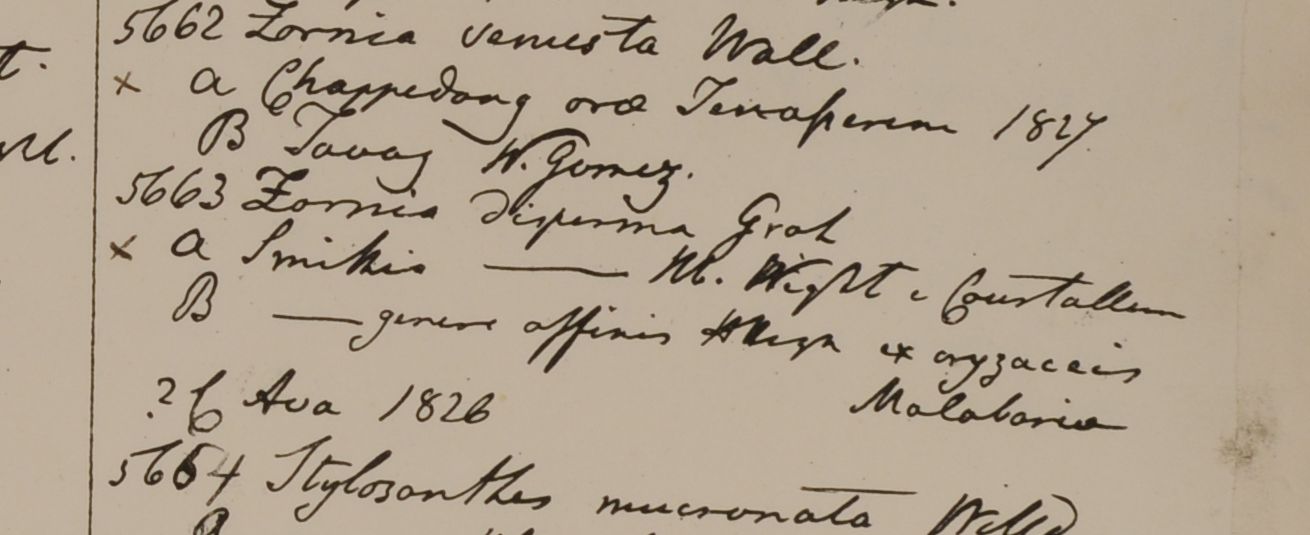 5662 Zornia venusta Wall.
x a Chappedong oræ Tenasserim 1827
B Tavoy W. Gomez.
5663 Zornia disperma Grah
x a Smithia —— H. Wight e Courtallum
B —— genere affinis HHeyn ex oryzaceis
Malabariæ
? C Ava 1826
5664 Stylosanthes mucronata Willd